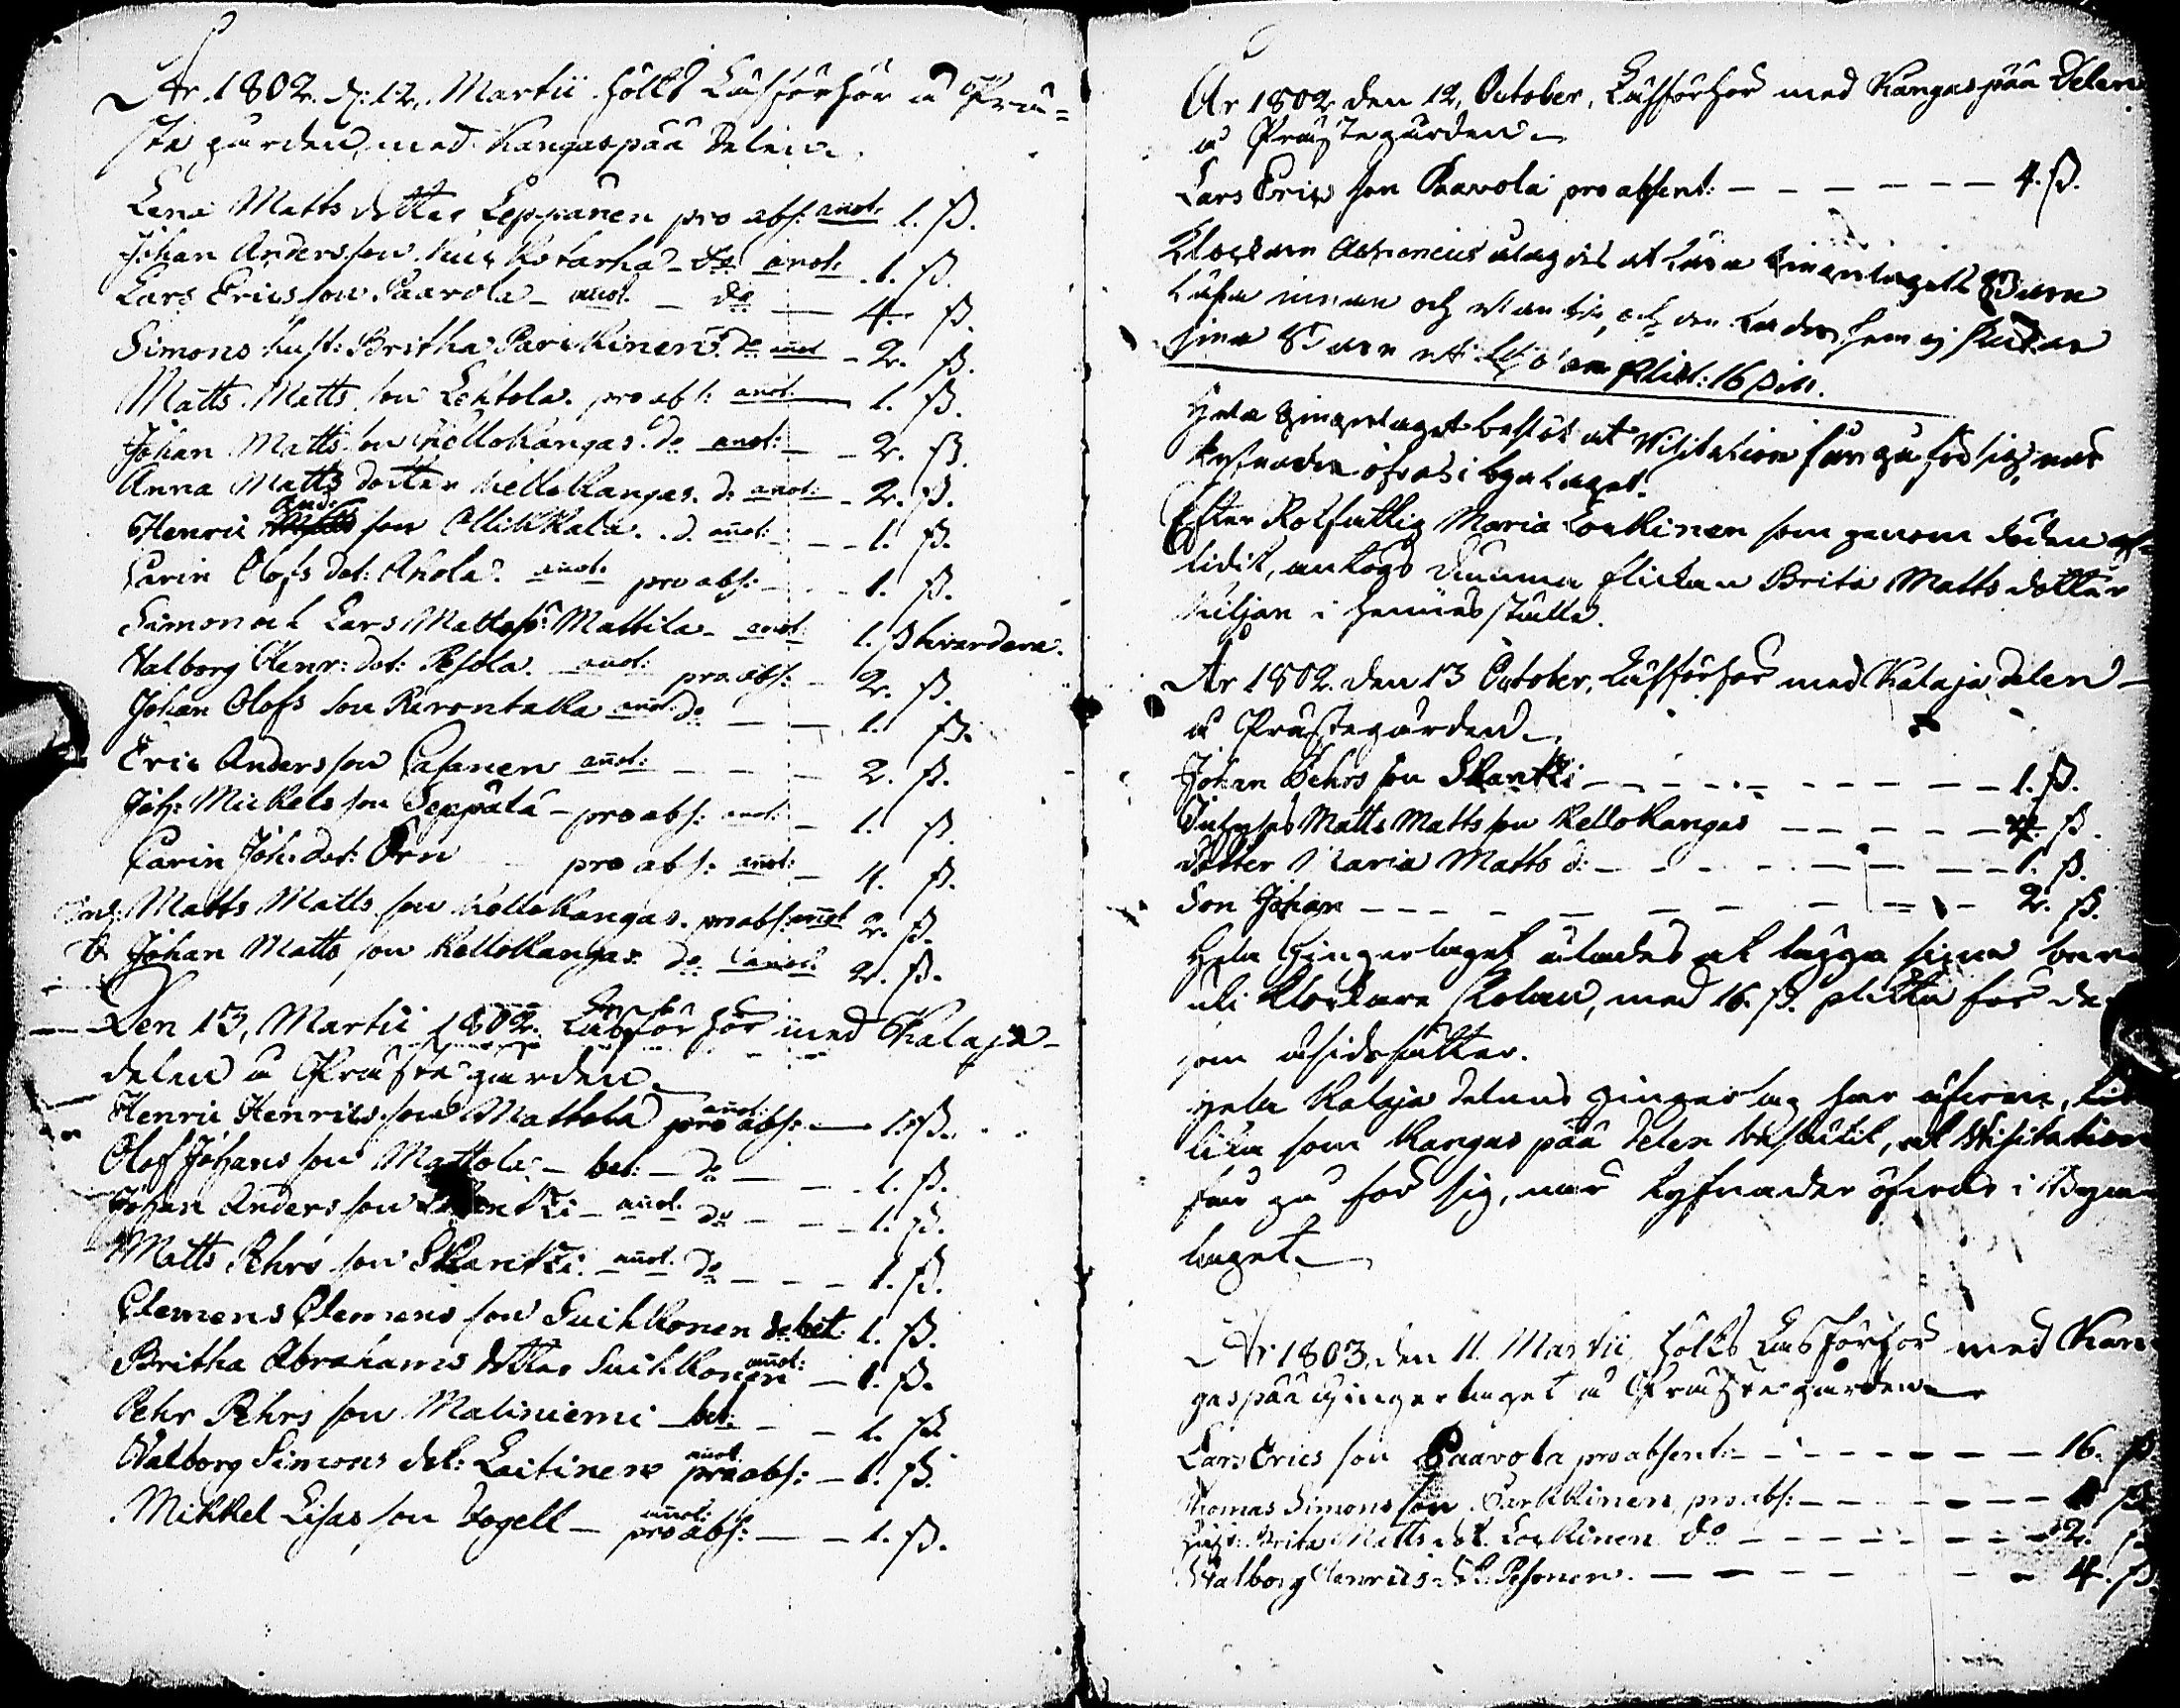 Ar 1802. d: 12. Martii hölls Läsförhör å Prä=
stegården, med Kangaspää Delen.
Lena Matts dotter Leppänen pro abs: anot: 1. ß.
Johan Anders son do anot: 1. ß.
Lars Erics son Paavola - anot. - do — 4. ß.
Simons hust: Britha Parikinen do anot - 2. ß.
Matts Matts son Lehtola. pro abs: anot. — 1. ß.
Johan Matts son Kellokangas. do anot: - 2. ß.
Anna Matts dotter Kellokangas. d: anot: - 2. ß.
Henric And: son Ollikkala. d. anot: - - 1. ß.
Carin Olofs dot: Ahola. anot. pro abs: - - 1. ß.
Simon och Lars Matts s: Mattila - anot: 1. ß hvardera.
Valborg Henr: dot: Pesola. anot: pro abs: - 2. ß.
Johan Olofs son Pirontakka anot: do — — 1. ß.
Eric Anders son Casanen anot: - - - 2. ß.
Joh: Mickels son Seppälä - pro abs: anot: - 1. ß.
Carin Joh: dot: Örn pro abs: anot: - 4. ß.
Inh: Matts Matts son Kellokangas. pro abs: anot 2. ß.
Johan Matts son Kellokangas do anot: 2. ß.
Den 13. Martii 1802. Läsförhör med Kalaja-
delen å Prästegården.
Henric Henrics son Mattola anot: pro abs: — 1. ß.
Olof Johans son Mattola - bet: - do — - 1. ß.
Johan Anders son - anot. do - - - 1. ß.
Matts Pehrs son Skantzi. - anot. do - - - 1. ß.
Clemens Clemens son Suihkonen debet: 1. ß.
Britha Abrahams dotter Suihkonen anot: — 1. ß.
Pehr Pehrs son Maliniemi - bet: - - 1. ß.
Valborg Simons dot: Laitinen anot. pro abs: - 1. ß.
Mikkel Eisas son Fogell - anot: pro abs: — - 1. ß.
År 1802 den 12, October, Läsförhör med Kangaspää Delen
å Prästegården.
Lars Erics son Paavola pro absent: - - - - - - 4. ß.
Klockarn at lära Gingerlagets Barn
läsa innan och utan till, och den som ej
sina Barn plikt: 16 ß.
Hela Gingerlaget beslöt at Visitation får gå för sig, när
tyfnader öfvas i byalaget.
Efter Rotfattig Maria Loukinen som genom döden af=
lidit, antogs dumma flickan Brita Matts dotter
i hennes ställe.
Ar 1802. den 13 October, Läsförhör med Kalaja delen -
å Prästegården.
Johan Pehrs son Skantzi - - - - - - - - 1. ß.
Matts Matts son Kellokangas - - - - - ß.
dotter Maria Matts d: - - - - - - - 1. ß.
Son Johan - - - - - - - - - 2. ß.
Hela Gingerlaget ålades at lägga sina barn
uti Klockare Skolan, med 16. ß. plikta för de
som åsidosätter.
Hela Kalaja delens gingerlag har äfven,
lika som Kangaspää delen beslutit, at Visitation
får gå för sig, när tyfnader öfvas i Bya-
laget.
Ar 1803, den 11. Martii, hölts Läsförhör med Kan-
gaspää Gingerlaget å Prästegården.
Lars Erics son Paavola pro absent: - - - - - - - 16. ß.
Thomas Simons son Parkkinen, pro abs: - - - - - - ß.
Hust: Brita Matts dot. Loukinen do - - - - - - 2. ß.
Walborg Henrics dot: Pesonen. - - - - - 4. ß.